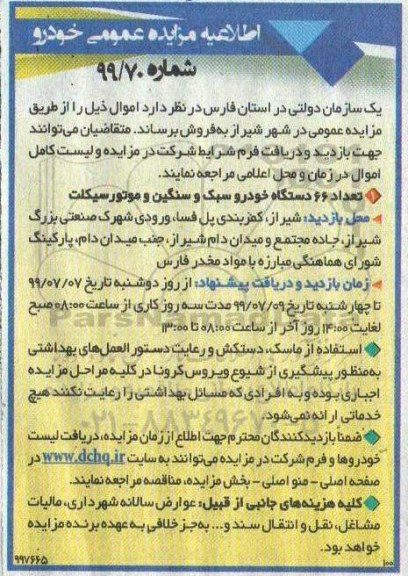 اطلاعیه مزایده عمومی خودرو
شماره ۹۹/۷۰
یک سازمان دولتی در استان فارس در نظر دارد اموال ذیل را از طریق
مزایده عمومی در شهر شیراز به‌فروش برساند. متقاضیان می‌توانند
جهت بازدید و دریافت فرم شرایط شرکت در مزایده و لیست کامل
اموال در زمان و محل اعلامی مراجعه نمایند.
۱ تعداد ۶۶ دستگاه خودرو سبک و سنگین و موتورسیکلت
محل بازدید: شیراز، کمربندی پل فسا، ورودی شهرک صنعتی بزرگ
شیراز، جاده مجتمع و میدان دام شیراز، جنب میدان دام، پارکینگ
شورای هماهنگی مبارزه با مواد مخدر فارس
زمان بازدید و دریافت پیشنهاد: از روز دوشنبه تاریخ ۹۹/۰۷/۰۷
تا چهارشنبه تاریخ ۹۹/۰۷/۰۹ مدت سه روز کاری از ساعت ۰۸:۰۰ صبح
لغایت ۱۴:۰۰ روز آخر از ساعت ۰۸:۰۰ تا ۱۳:۰۰
استفاده از ماسک، دستکش و رعایت دستور العمل‌های بهداشتی
به‌منظور پیشگیری از شیوع ویروس کرونا در کلیه مراحل مزایده
اجباری بوده و به افرادی که مسائل بهداشتی را رعایت نکنند هیچ
خدماتی ارائه نمی‌شود.
ضمنا بازدیدکنندگان محترم جهت اطلاع از زمان مزایده، دریافت لیست
خودروها و فرم شرکت در مزایده می‌توانند به سایت www.dchq.ir در
صفحه اصلی - منو اصلی - بخش مزایده، مناقصه مراجعه نمایند.
کلیه هزینه‌های جانبی از قبیل: عوارض سالانه شهرداری، مالیات
مشاغل، نقل و انتقال سند و... به‌جز خلافی به عهده برنده مزایده
خواهد بود.
۹۹۷۶۶۵
۱۰۰